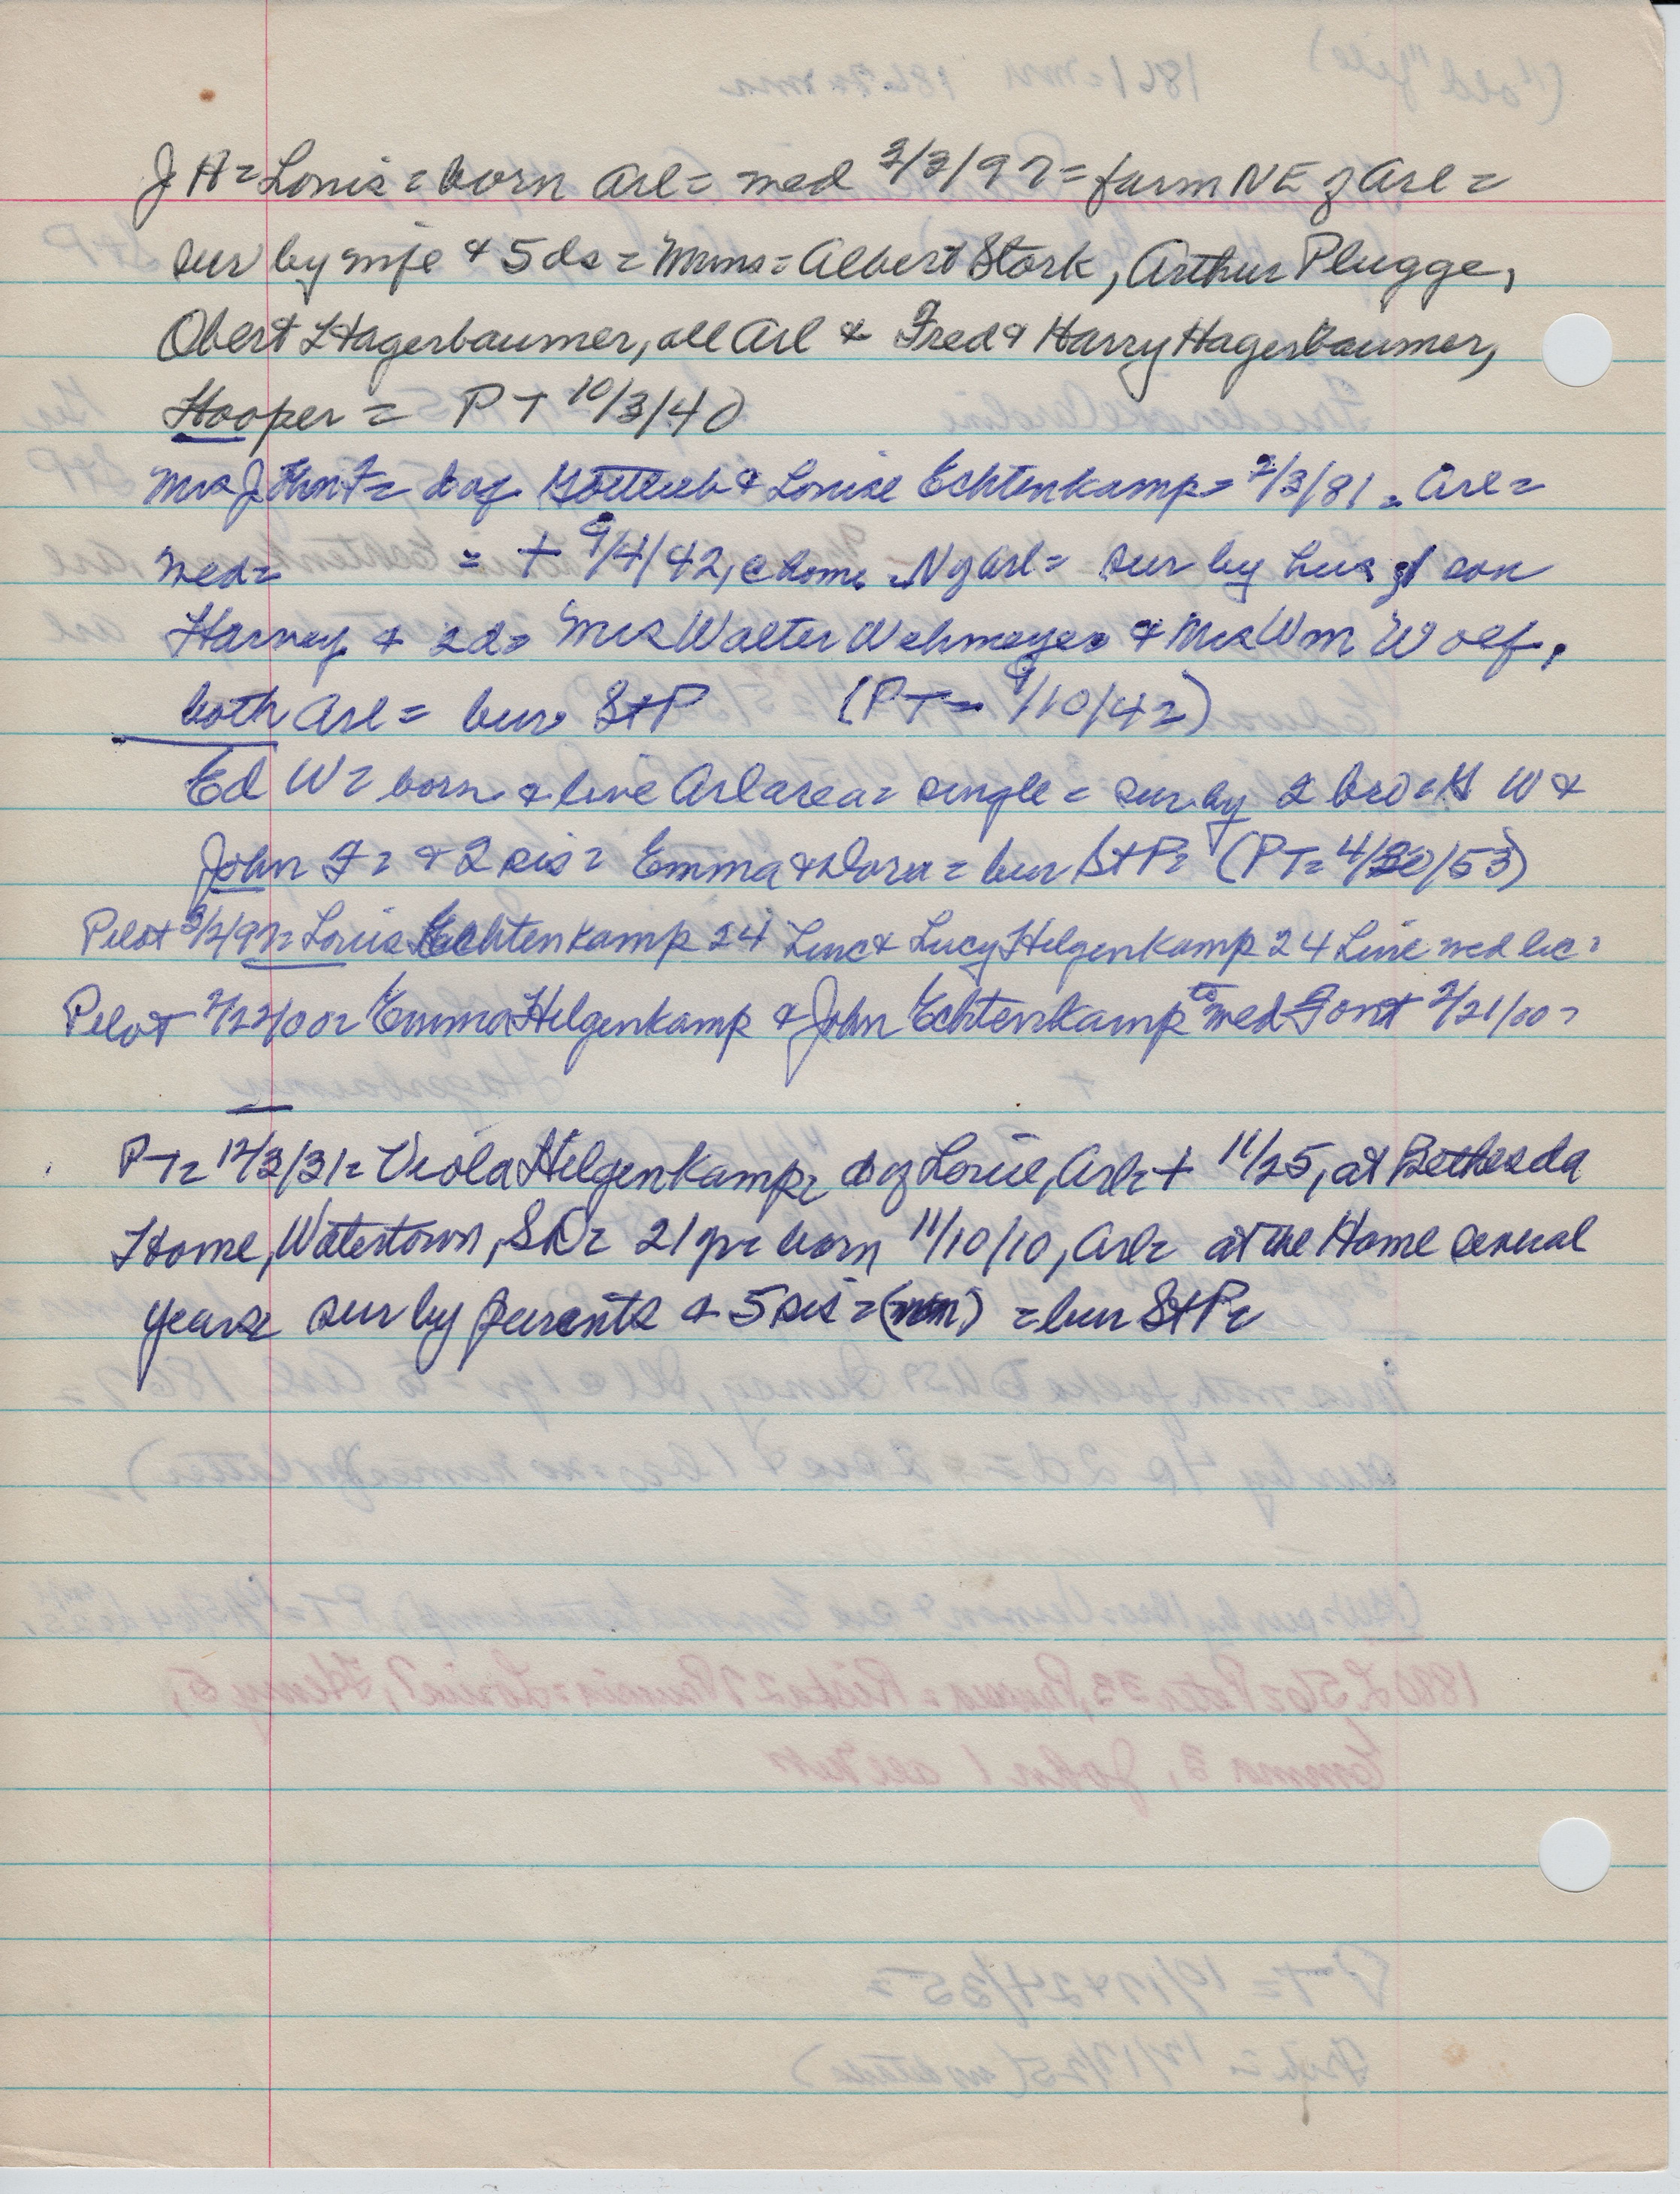 J H = Louis = born Arl = wed 3/3/97 = farm NE of Arl =
sur by wife & 5 ds = Mmes = Albert Stork, Arthur Plugge,
Obert Hagerbaumer, all Arl & Fred & Harry Hagerbaumer,
Hooper = PT 10/3/40
Mrs John F = d of Gottlieb & Louise Echtenkamp = 2/3/81 = Arl =
wed = = + 9/4/42, @ home N of Arl = sur by hus & son
Harvey & 2d = Mrs Walter Wehmeyer & Mrs Wm Wolf,
both Arl = bur St P (PT = 9/10/42)
Ed W = born & live Arl area = single = sur by 2 bro = H W &
John F = & 2 sis = Emma & Dora = bur St P = (PT = 4/30/53)
Pilot 3/4/97 = Louis Echtenkamp 24 Linc & Lucy Helgenkamp 24 Linc wed lic =
Pilot 2/22/00 = Emma Helgenkamp & John Echtenkamp to wed Font 2/21/00 =
PT = 12/3/31 = Viola Helgenkamp = d of Louie, Arl = + 11/25, at Bethesda
Home, Watertown, = 21 yr = born 11/10/10, Arl = at the Home several
years = sur by parents & 5 sis = = bur St P =